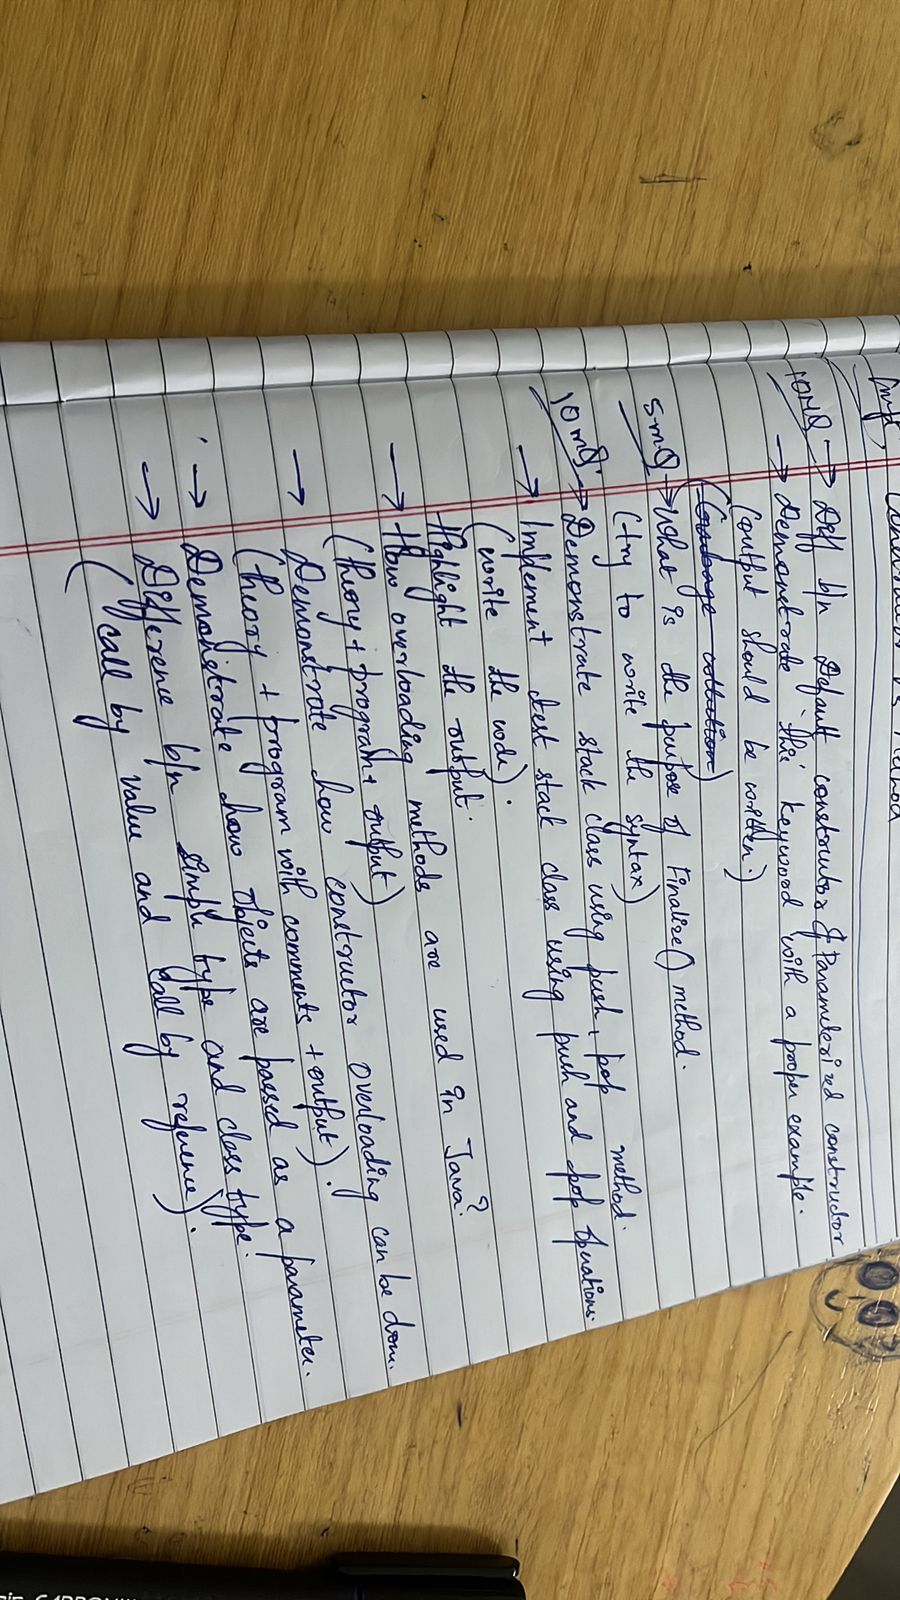 Impt, Constructor vs Method
10MQ → Diff b/n Default constructor & Parameterized constructor
→ Demonstrate 'this' keyword with a proper example.
(output should be written.)
(Garbage collection)
5mQ → What is the purpose of Finalize() method.
(try to write the syntax)
10mQ. → Demonstrate stack class using push, pop method.
→ Implement test stack class using push and pop operations.
(write the code).
Highlight the output.
→ How overloading methods are used in Java?
(theory + program + output)
→ Demonstrate how constructor overloading can be done.
(theory + program with comments + output).
→ Demonstrate how objects are passed as a parameter.
→ Difference b/n simple type and class type.
(call by value and call by reference).